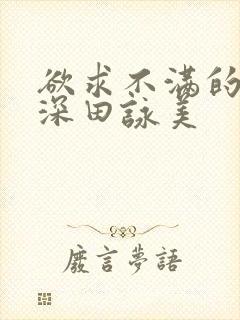 欲求不満的
深田詠美
廢言夢語